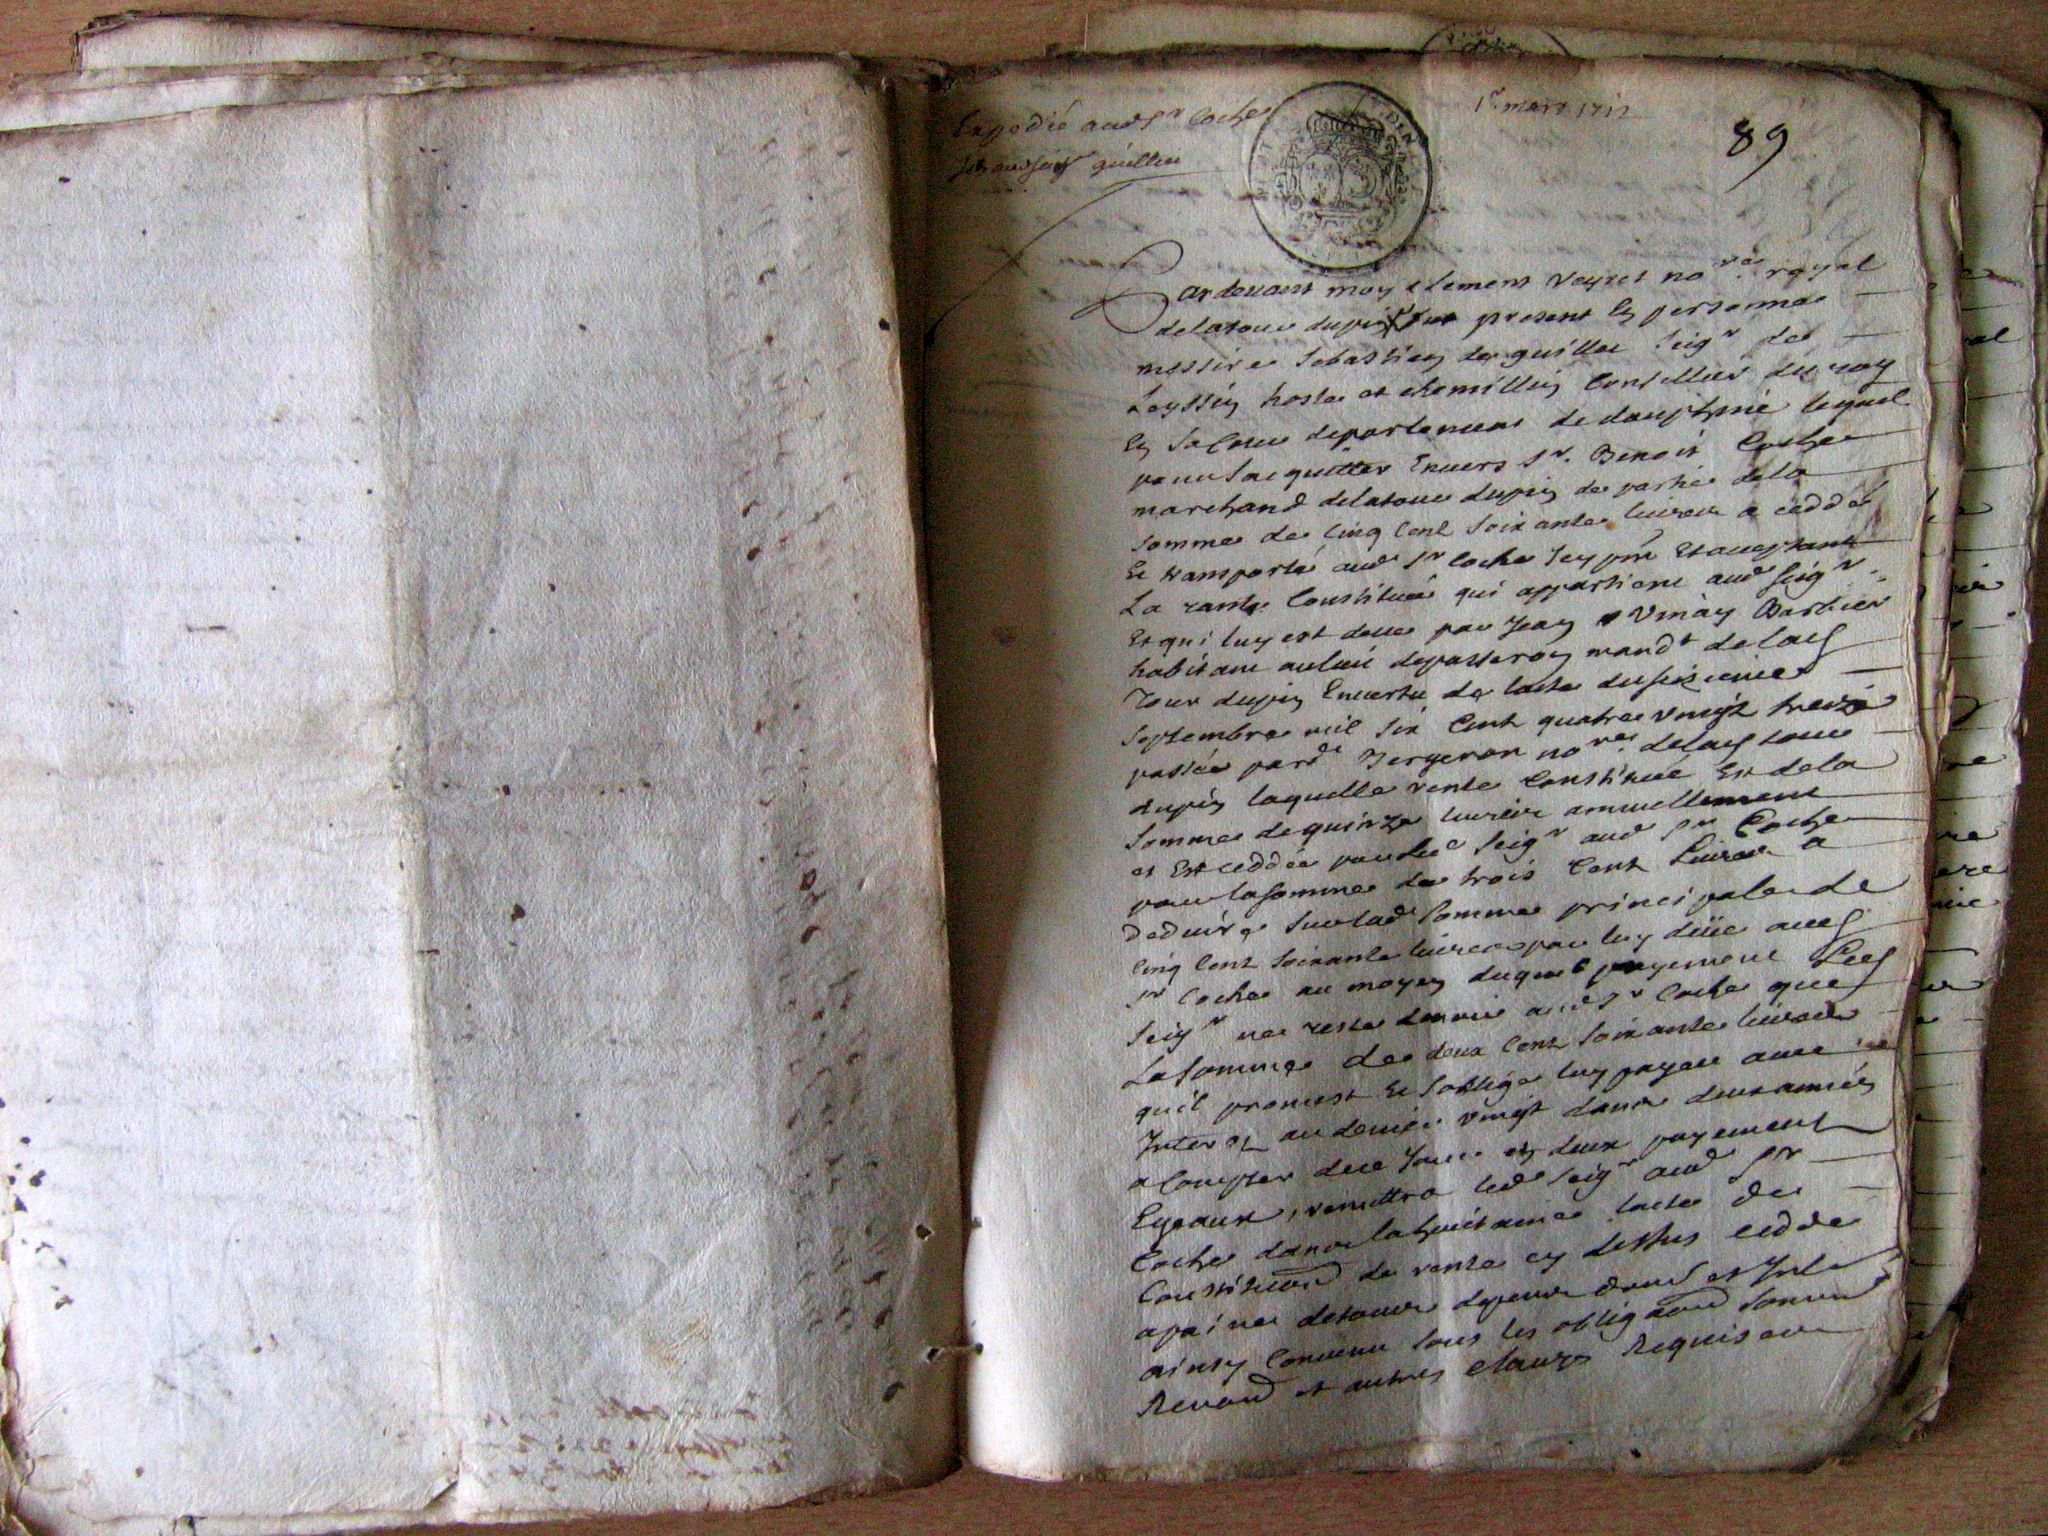 Expedié aud sr Coche
guillet
1r mars 1712
89
Pardevant moy Clement Veyret no.re royal
delatour dupin fut present en personne
messire Sebastien de guillet Seigr de
Leyssin hoste et chemillin Conseiller du roy
En sa Cour departement de dauphiné lequel
pour sacquitter Envers sr. Benoit Coche
marchand delatour dupin de partie dela
somme de Cinq Cent soixante livres a ceddé
Et transporté aud sr Coche Icy pnt Et acceptant
La rante Constituée qui appartient aud seigr
Et qui luy est deue par Jean Vinay Barbier
habitant aulieu depasseron mandt delad
Tour dupin Envertu de lacte du
Septembre mil six Cent quatre vingt treize
passée pard Bergeron no.re delad tour
dupin laquelle rente Constituée Est dela
somme dequinze livres annuellement
et Est ceddée par led seigr aud sr Coche
pour la somme de trois Cent livres a
deduire sur lad somme principale de
Cinq Cent soixante livres par luy düe aud
sr Coche au moyen duquel payement Led
seigr ne reste devoir aud sr Coche que
La somme de deux Cent soixante livres
quil promest Et soblige luy payer avec
Interest au denier vingt dans deux années
a Compter de ce Jour en deux payement
Egeaux, remettra led seigr aud sr
Coche dans la huictaine lacte de
Constituaon de rente cy dessus cedde
apaine detous depens dom et Inte
ainsy Convenu sous les obligaons soumi
Renon et autres clauzes Requises